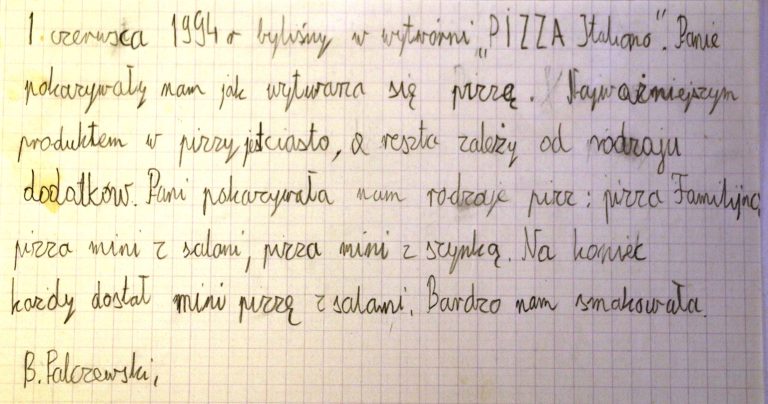 1 czerwsca 1994 r byliśmy w wytwórni „PIZZA Italiano". Panie
pokazywały nam jak wytwarza się pizzę. Najważniejszym
produktem w pizzy jest ciasto, a reszta zależy od rodzaju
dodatków. Pani pokazywała nam rodzaje pizz: pizza Familijna,
pizza mini z salami, pizza mini z szynką. Na koniec
każdy dostał mini pizzę z salami. Bardzo nam smakowała.
B. Palczewski,